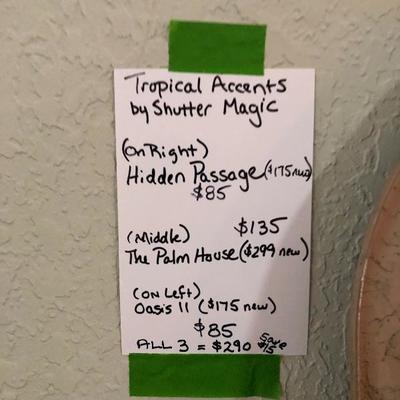 Tropical Accents
by Shutter Magic
(On Right)
Hidden Passage ($175 new)
$85
$135
(Middle)
The Palm House ($299 new)
(On Left)
Oasis II ($175 new)
$85
ALL 3 = $290 Save $15